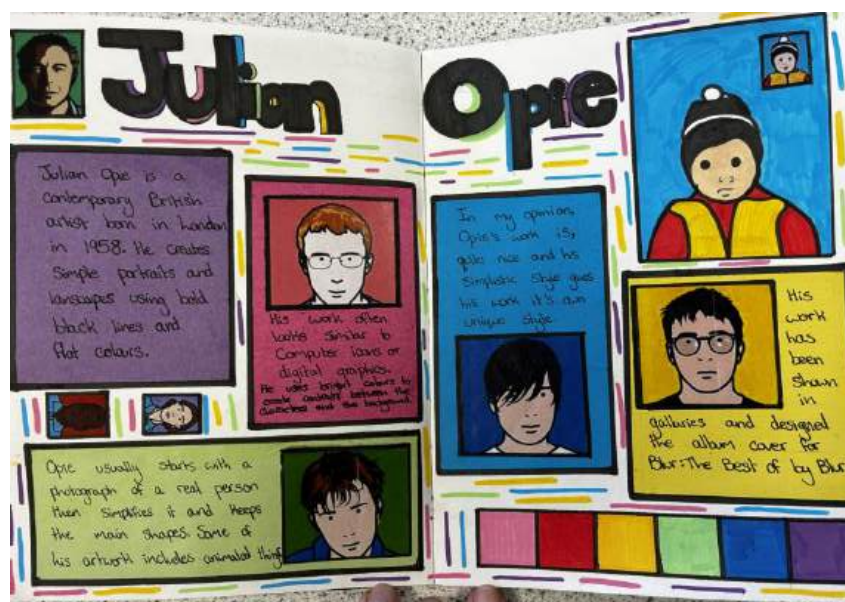 Julian Opie
Julian Opie is a
contemporary British
artist born in London
in 1958. He creates
simple portraits and
lanscapes using bold
black lines and
flat colours.
His work often
looks similar to
Computer icons or
digital graphics.
He uses bright colours to
create contrasts between the
characters and the background.
Opie usually starts with a
photograph of a real person
then simplifies it and keeps
the main shapes. Some of
his artwork includes animated things
In my opinion,
Opie's work is,
quite nice and his
simplistic style gives
his work it's own
unique style
His
work
has
been
shown
in
galleries and designed
the album cover for
Blur: The Best of by Blur